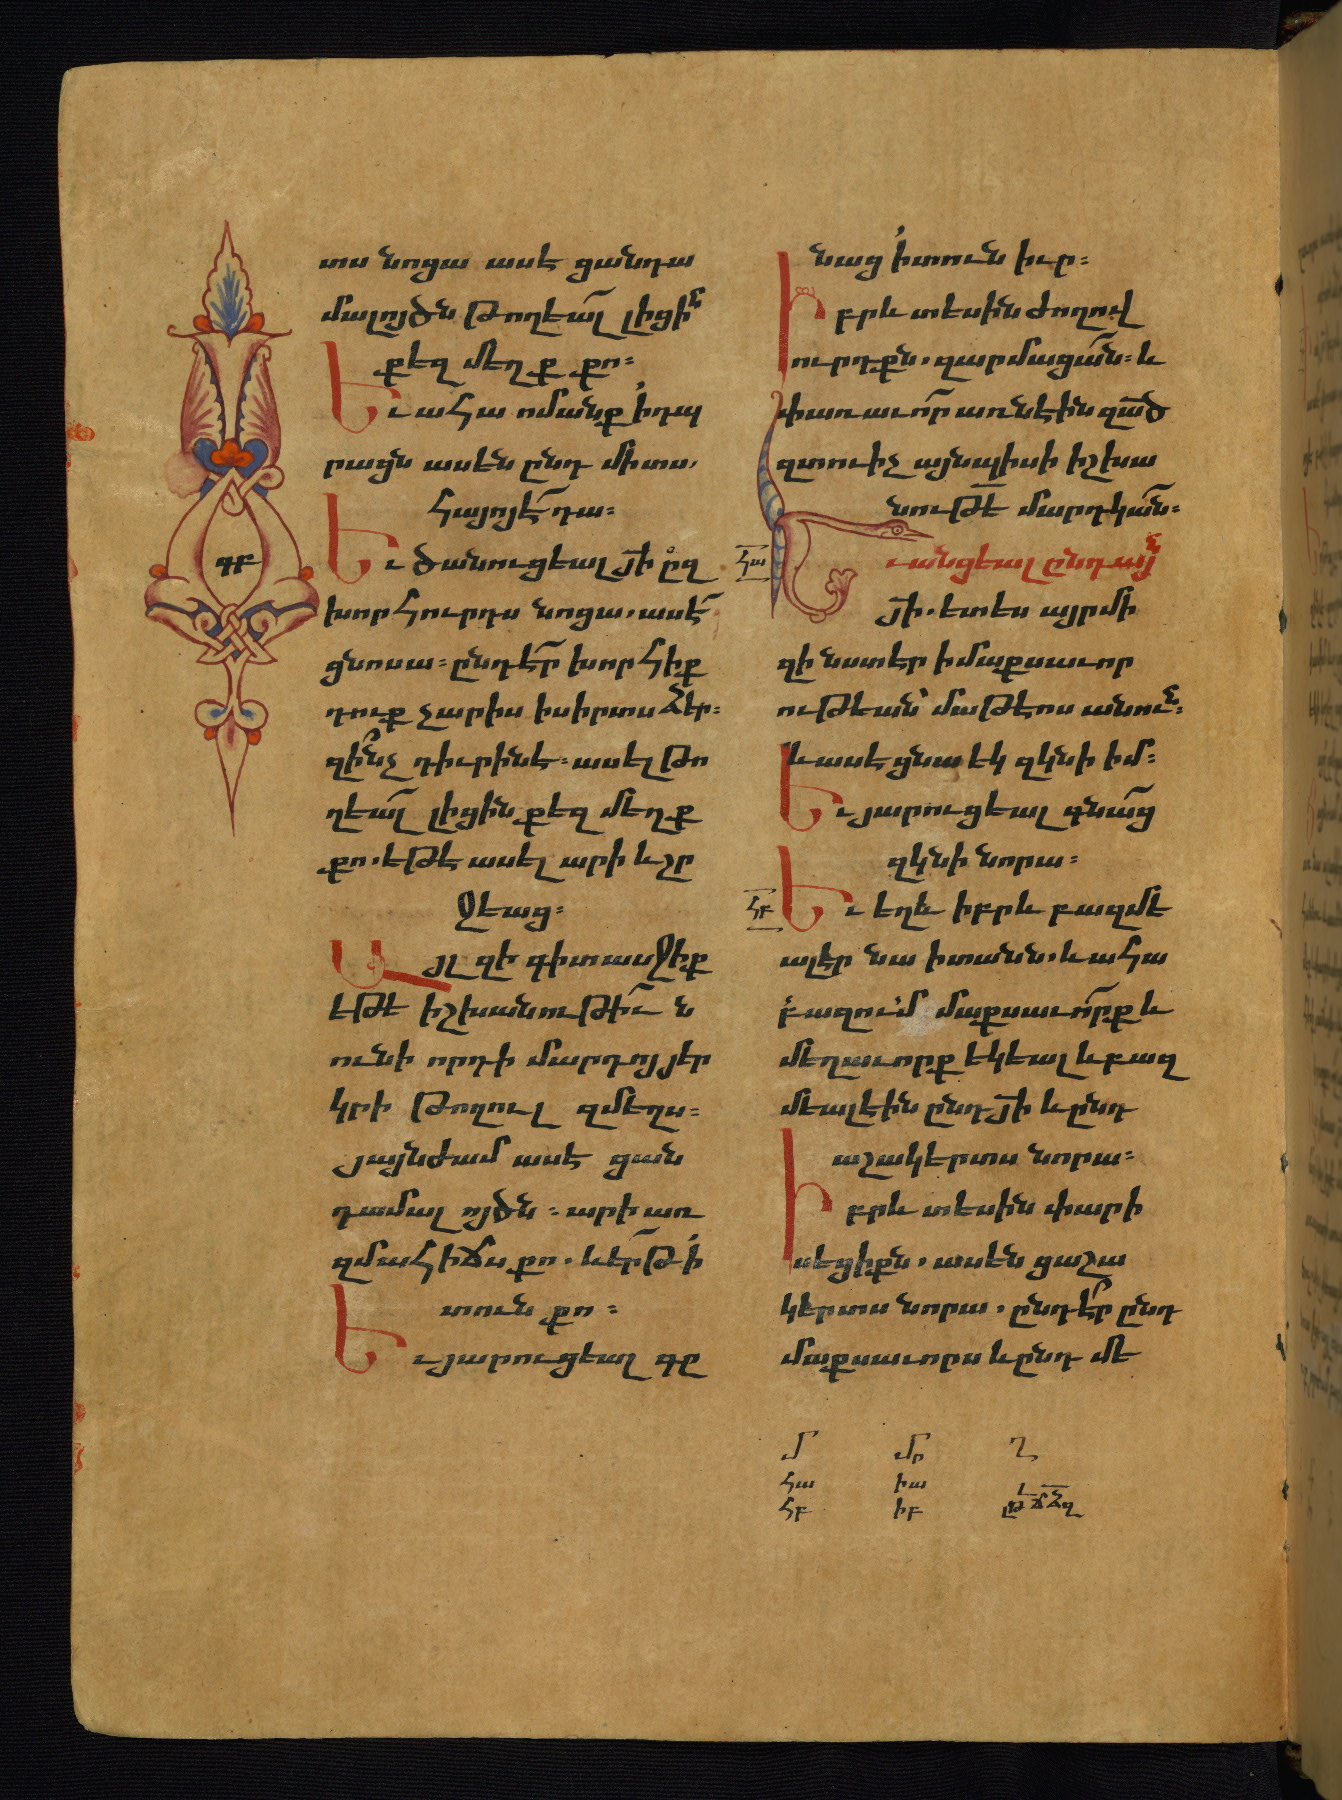 տս նոցա ասէ ցանդա
մալոյծն թողեալ լիցին
քեզ մեղք քո։
Եւ ահա ոմանք ի դպ
րացն ասէին ընդ միտս․
հայոյէ դա։
Եւ ծանուցեալ յի ըզ
խորհուրդս նոցա․ ասէ
ցնոսա։ ընդէր խորհիք
դուք չարիս ի սիրտս ձեր։
զինչ դիւրին է։ ասել թո
ղեալ լիցին քեզ մեղք
քո․ եթէ ասել արի և շը
ջեաց։
Այլ զի գիտասջիք
եթէ իշխանութիւն
ունի որդի մարդոյ յեր
կրի թողուլ զմեղս։
յայնժամ ասէ ցան
դամալոյծն։ արի առ
զմահիճս քո․ և երթ ի
տուն քո։
Եւ յարուցեալ գը
գբ
նաց ի տուն իւր։
Իբրև տեսին ժողով
ուրդքն․ զարմացան։ և
փառաւոր առնէին զած
զտուիչ այնպիսի իշխա
նութե մարդկան։
հա
Եւ անցեալ ընդ այն
յի․ ետես այր մի
զի նստէր ի մաքսաւոր
ութեան՝ մաթէոս անուն։
և ասէ ցնա եկ զկնի իմ։
Եւ յարուցեալ գնաց
զկնի նորա։
հբ
Եւ եղև իբրև բազմե
ալ էր նա ի տանն․ և ահա
բազում մաքսաւորք և
մեղաւորք եկեալ և բազ
մեալ էին ընդ յի և ընդ
աշակերտս նորա։
Իբրև տեսին փարի
սեցիքն․ ասեն ցաշա
կերտս նորա․ ընդէր ընդ
մաքսաւորս և ընդ մե
մ մր ղ
հա իա
հբ իբ